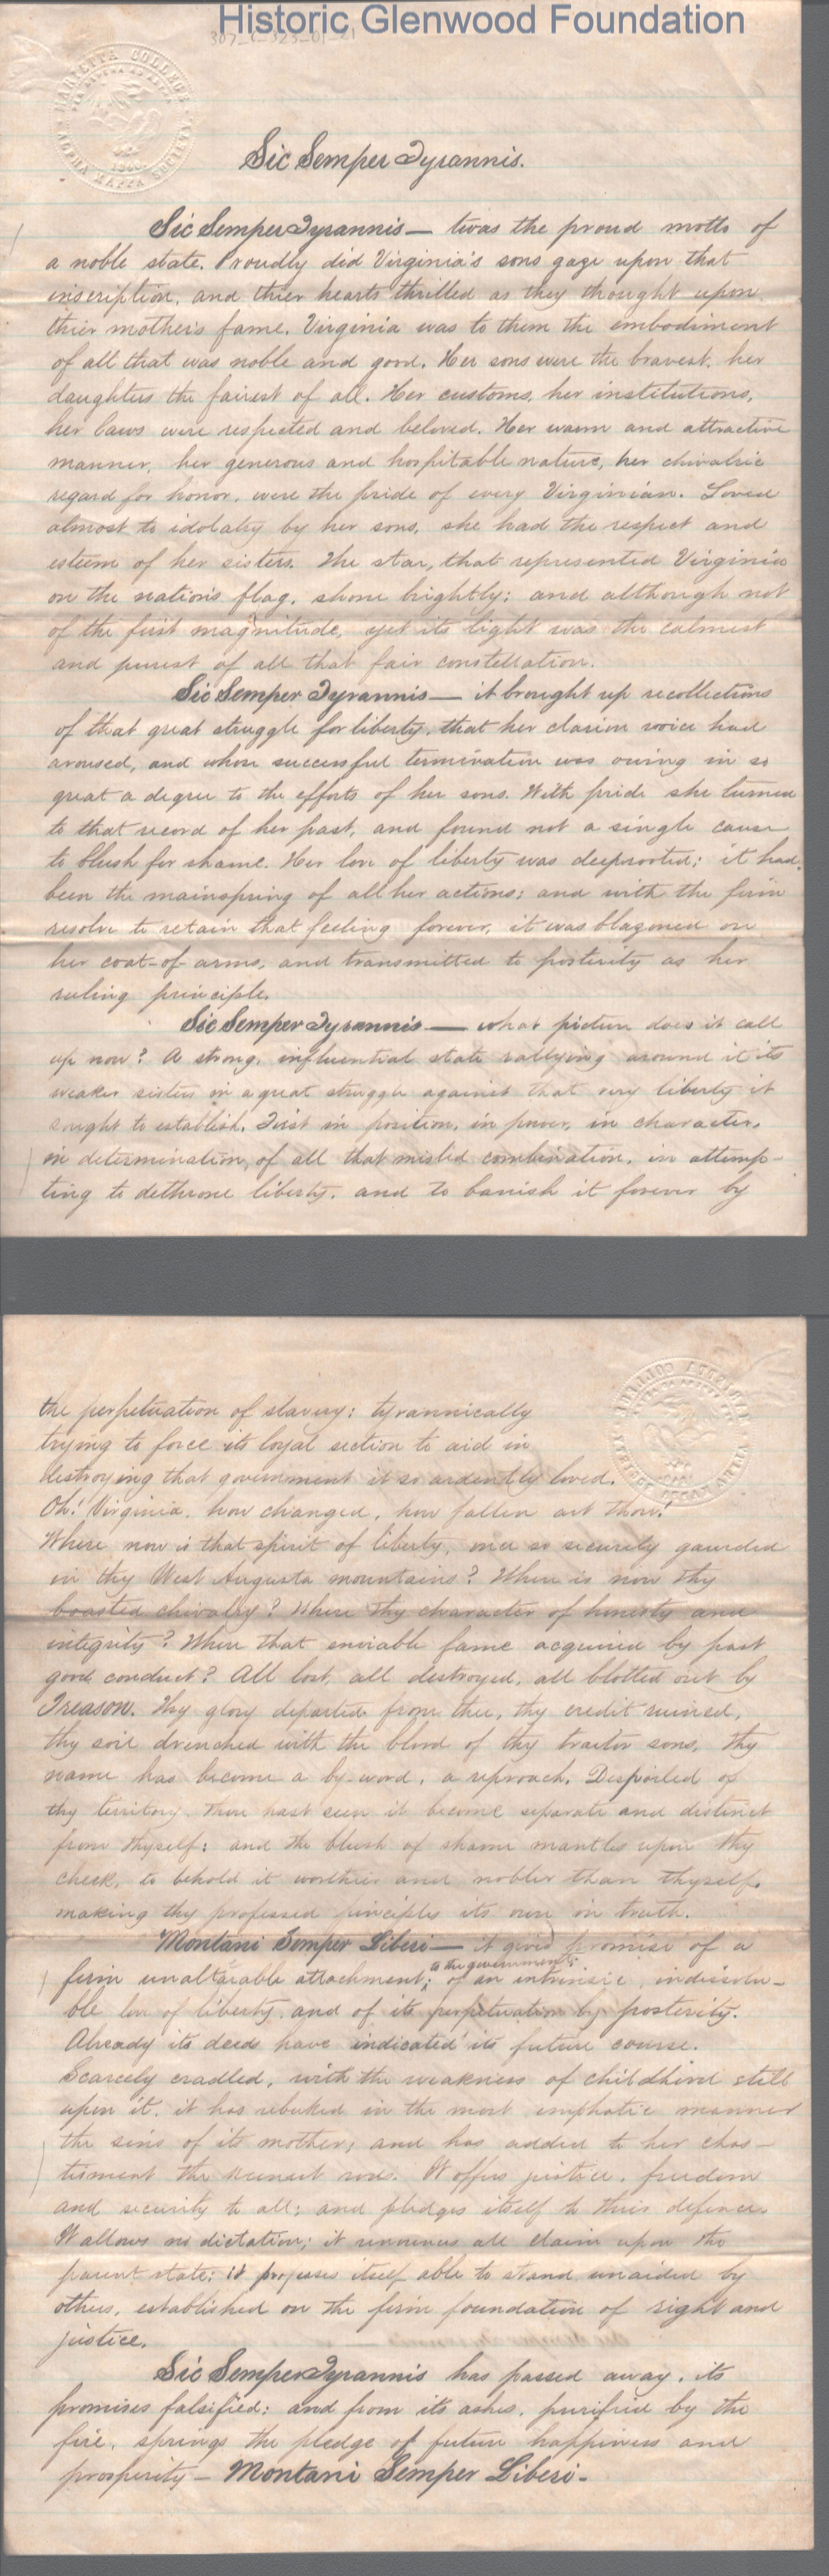 Historic Glenwood Foundation
307-1-323-01-21
MARIETTA COLLEGE
ALPHA KAPPA SOCIETY
Sic Semper Tyrannis.
Sic Semper Tyrannis— twas the proud motto of
a noble state. Proudly did Virginia's sons gaze upon that
inscription, and thier hearts thrilled as they thought upon
thier mother's fame. Virginia was to them the embodiment
of all that was noble and good. Her sons were the bravest, her
daughters the fairest of all. Her customs, her institutions,
her laws were respected and beloved. Her warm and attractive
manner, her generous and hospitable nature, her chivalric
regard for honor, were the pride of every Virginian. Loved
almost to idolatry by her sons, she had the respect and
esteem of her sisters. The star, that represented Virginia
on the nation's flag, shone brightly; and although not
of the first magnitude, yet its light was the calmest
and purest of all that fair constellation.
Sic Semper Tyrannis— it brought up recollections
of that great struggle for liberty, that her clarion voice had
aroused, and whose successful termination was owing in so
great a degree to the efforts of her sons. With pride she turned
to that record of her past, and found not a single cause
to blush for shame. Her love of liberty was deeprooted; it had
been the mainspring of all her actions; and with the firm
resolve to retain that feeling forever, it was blazoned on
her coat-of arms, and transmitted to posterity as her
ruling principle.
Sic Semper Tyrannis— what picture does it call
up now? A strong, influential state rallying around it its
weaker sisters in a great struggle against that very liberty it
sought to establish. First in position, in power, in character,
in determination, of all that misled combination, in attemp-
ting to dethrone liberty, and to banish it forever by
the perpetuation of slavery; tyrannically
trying to force its loyal section to aid in
destroying that government it so ardently loved.
Oh! Virginia, how changed, how fallen art thou!
Where now is that spirit of liberty, once so securely gaurded
in thy West Augusta mountains? Where is now thy
boasted chivalry? Where thy character of honesty and
integrity? Where that enviable fame acquired by past
good conduct? All lost, all destroyed, all blotted out by
Treason. Thy glory departed from thee, thy credit ruined,
thy soil drenched with the blood of thy traitor sons, thy
name has become a by-word, a reproach. Despoiled of
thy territory, thou hast seen it become separate and distinct
from thyself; and the blush of shame mantles upon thy
cheek, to behold it worthier and nobler than thyself,
making thy professed principles its own in truth.
Montani Semper Liberi— it gives promise of a
to the government;
firm unaltarable attachment; of an intrinsic, indissolu-
ble love of liberty, and of its perpetuation by posterity.
Already its deeds have indicated its future course.
Scarcely cradled, with the weakness of childhood still
upon it, it has rebuked in the most emphatic manner
the sins of its mother; and has added to her chas-
tisment the keenest rods. It offers justice, freedom
and security to all; and pledges itself to their defence.
It allows no dictation; it renounces all claim upon the
parent state; it professes itself able to stand unaided by
others, established on the firm foundation of right and
justice.
Sic Semper Tyrannis has passed away, its
promises falsified; and from its ashes, purified by the
fire, springs the pledge of future happiness and
prosperity— Montani Semper Liberi-